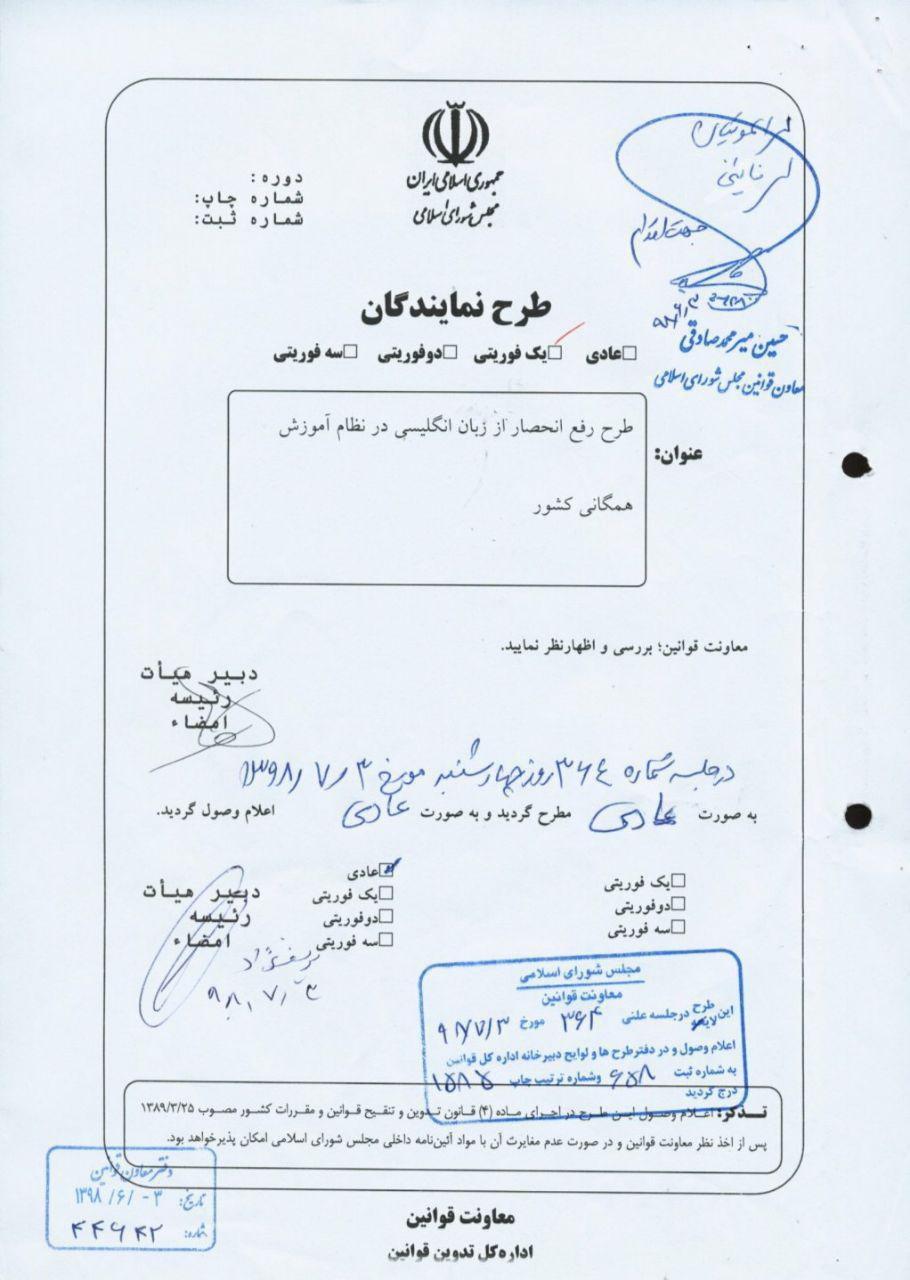 جمهوری اسلامی ایران
مجلس شورای اسلامی
دوره:
شماره چاپ:
شماره ثبت:
جهت اقدام
۹۸/۶/۳
حسین میرمحمدصادقی
معاون قوانین مجلس شورای اسلامی
طرح نمایندگان
□عادی □یک فوریتی □دوفوریتی □سه فوریتی
عنوان:
طرح رفع انحصار از زبان انگلیسی در نظام آموزش
همگانی کشور
معاونت قوانین؛ بررسی و اظهارنظر نمایید.
دبیر هیأت
رئیسه
امضاء
درجلسه شماره ۳۶۴ روز چهارشنبه مورخ ۱۳۹۸/۷/۳
به صورت عادی مطرح گردید و به صورت عادی اعلام وصول گردید.
□یک فوریتی
□دوفوریتی
□سه فوریتی
☑عادی
□یک فوریتی
□دوفوریتی
□سه فوریتی
دبیر هیأت
رئیسه
امضاء
۹۸/۷/۳
مجلس شورای اسلامی
معاونت قوانین
این طرح لایحه درجلسه علنی ۳۶۴ مورخ ۹۸/۷/۳
اعلام وصول و در دفترطرح ها و لوایح دبیرخانه اداره کل قوانین
به شماره ثبت ۶۵۸ وشماره ترتیب چاپ ۱۵۸۵
درج گردید
تذکر: اعلام وصول این طرح در اجرای ماده (۴) قانون تدوین و تنقیح قوانین و مقررات کشور مصوب ۱۳۸۹/۳/۲۵
پس از اخذ نظر معاونت قوانین و در صورت عدم مغایرت آن با مواد آئین‌نامه داخلی مجلس شورای اسلامی امکان پذیرخواهد بود.
دفتر معاون قوانین
تاریخ: ۱۳۹۸/۶/۰۳
شماره: ۴۴۶۴۲
معاونت قوانین
اداره‌کل تدوین قوانین